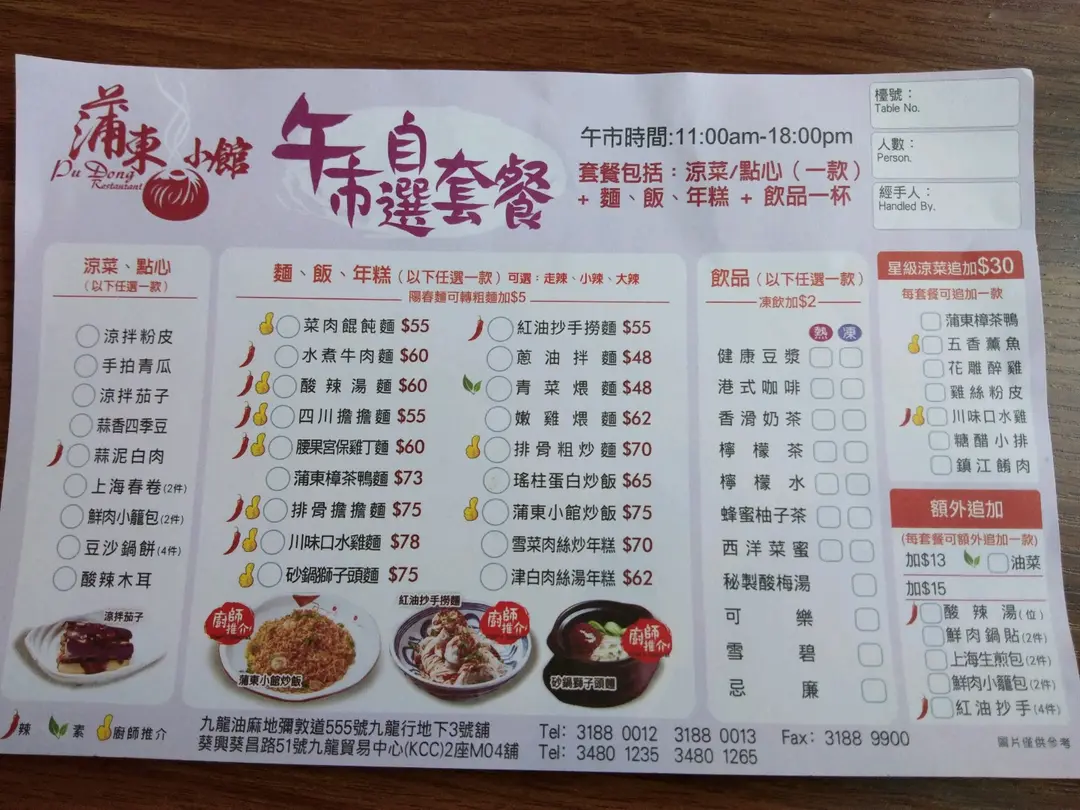 蒲東小館
Pu Dong
Restaurant
午市自選套餐
午市時間:11:00am-18:00pm
套餐包括：涼菜/點心（一款）
+ 麵、飯、年糕 + 飲品一杯
檯號：
Table No.
人數：
Person.
經手人：
Handled By.
涼菜、點心
(以下任選一款)
涼拌粉皮
手拍青瓜
涼拌茄子
蒜香四季豆
蒜泥白肉
上海春卷(2件)
鮮肉小籠包(2件)
豆沙鍋餅(4件)
酸辣木耳
涼拌茄子
麵、飯、年糕（以下任選一款）可選：走辣、小辣、大辣
陽春麵可轉粗麵加$5
菜肉餛飩麵 $55
水煮牛肉麵 $60
酸辣湯麵 $60
四川擔擔麵 $55
腰果宮保雞丁麵 $60
蒲東樟茶鴨麵 $73
排骨擔擔麵 $75
川味口水雞麵 $78
砂鍋獅子頭麵 $75
紅油抄手撈麵 $55
蔥油拌麵 $48
青菜煨麵 $48
嫩雞煨麵 $62
排骨粗炒麵 $70
瑤柱蛋白炒飯 $65
蒲東小館炒飯 $75
雪菜肉絲炒年糕 $70
津白肉絲湯年糕 $62
廚師推介!
蒲東小館炒飯
紅油抄手撈麵
廚師推介!
廚師推介!
砂鍋獅子頭麵
飲品（以下任選一款）
凍飲加$2
熱 凍
健康豆漿
港式咖啡
香滑奶茶
檸檬茶
檸檬水
蜂蜜柚子茶
西洋菜蜜
秘製酸梅湯
可樂
雪碧
忌廉
星級涼菜追加$30
每套餐可追加一款
蒲東樟茶鴨
五香薰魚
花雕醉雞
雞絲粉皮
川味口水雞
糖醋小排
鎮江餚肉
額外追加
(每套餐可額外追加一款)
加$13 油菜
加$15
酸辣湯(位)
鮮肉鍋貼(2件)
上海生煎包(2件)
鮮肉小籠包(2件)
紅油抄手(4件)
辣 素 廚師推介
九龍油麻地彌敦道555號九龍行地下3號舖 Tel: 3188 0012 3188 0013 Fax: 3188 9900
葵興葵昌路51號九龍貿易中心(KCC)2座M04舖 Tel: 3480 1235 3480 1265
圖片僅供參考